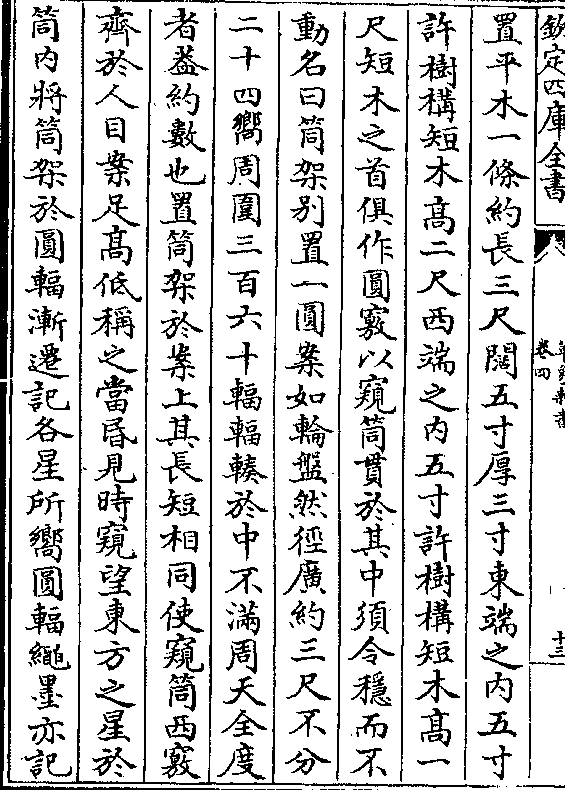 欽定四庫全書
卷四
十三
置平木一條約長三尺闊五寸厚三寸東端之内五寸
許樹構短木高二尺西端之内五寸許樹構短木高一
尺短木之首俱作圓竅以窺筒貫於其中須令穩而不
動名曰筒架别置一圓案如輪盤然徑廣約三尺不分
二十四嚮周圍三百六十輻輻輳於中不滿周天全度
者葢約數也置筒架於案上其長短相同使窺筒西竅
齊於人目案足高低稱之當昏見時窺望東方之星於
筒内將筒架於圓輻漸遷記各星所嚮圓輻繩墨亦記